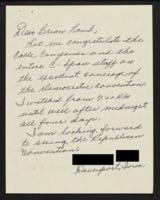 Dear Brian Lamb,
Let me congratulate the
Cable Companies and the
entire C-Span staff on
the excellent coverage of
the Democratic Convention.
I watched from
until well after midnight
all four days.
I am looking forward
to seeing the Republican
Convention.
Davenport, Iowa